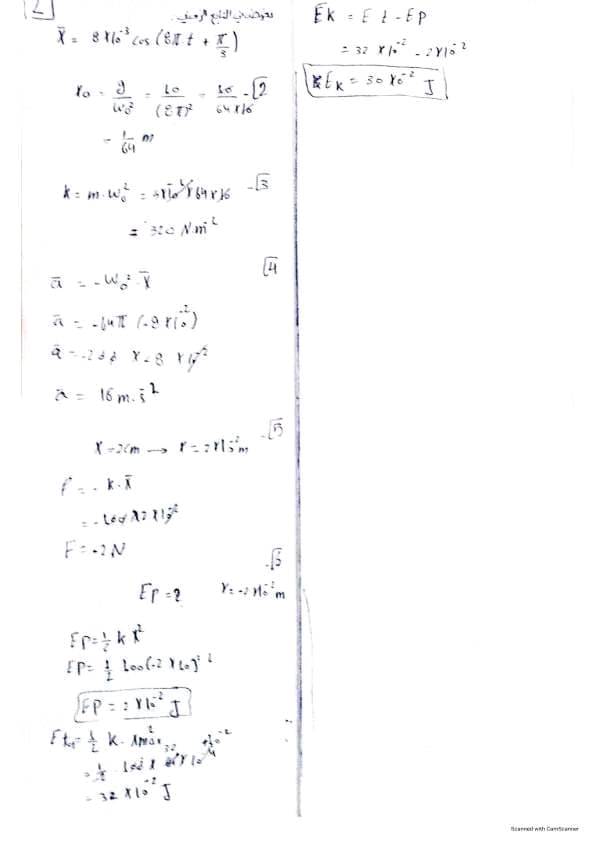 نعوض في التابع الزمني
X̄ = 8×10⁻³ cos (8π t + π/3)
x₀ = g/ω₀² = 10/(8π)² = 10/64×10 -2
= 1/64 m
k = m·ω₀² = ×64×10 -3
= 320 N.m²
4
ā = -ω₀²·X̄
ā = -64π (-8×10⁻²)
ā = × -8 ×10⁻²
ā = 16 m.s̄²
X = 2cm → X = 2×10⁻²m -5
F = - k·x̄
= -100×2×10⁻²
F = -2N
Ep = ? X = -2×10⁻²m
Ep = 1/2 k X²
Ep = 1/2 100(-2×10)⁻² ²
Ep = 2×10⁻² J
= 1/2 k· Xmax²
= 32×10⁻² J
Ek = Et - Ep
= 32×10⁻² - 2×10⁻²
Ek = 30×10⁻² J
Scanned with CamScanner